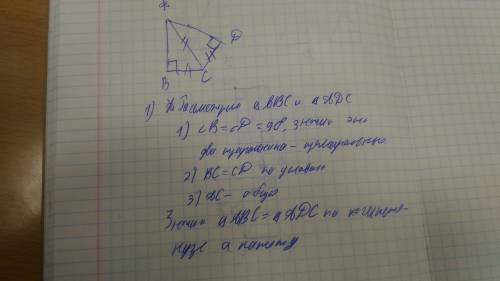 A
D
B
C
1) Рассмотрим △ABC и △ADC
1) ∠B=∠D=90°, значит эти
два треугольника - прямоугольные
2) BC=CD по условию
3) AC - общая
Значит △ABC=△ADC по гипоте-
нузе и катету